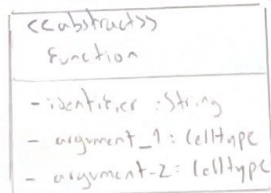 <<abstract>>
Function
- identifier : String
- argument_1 : CellType
- argument-2 : CellType